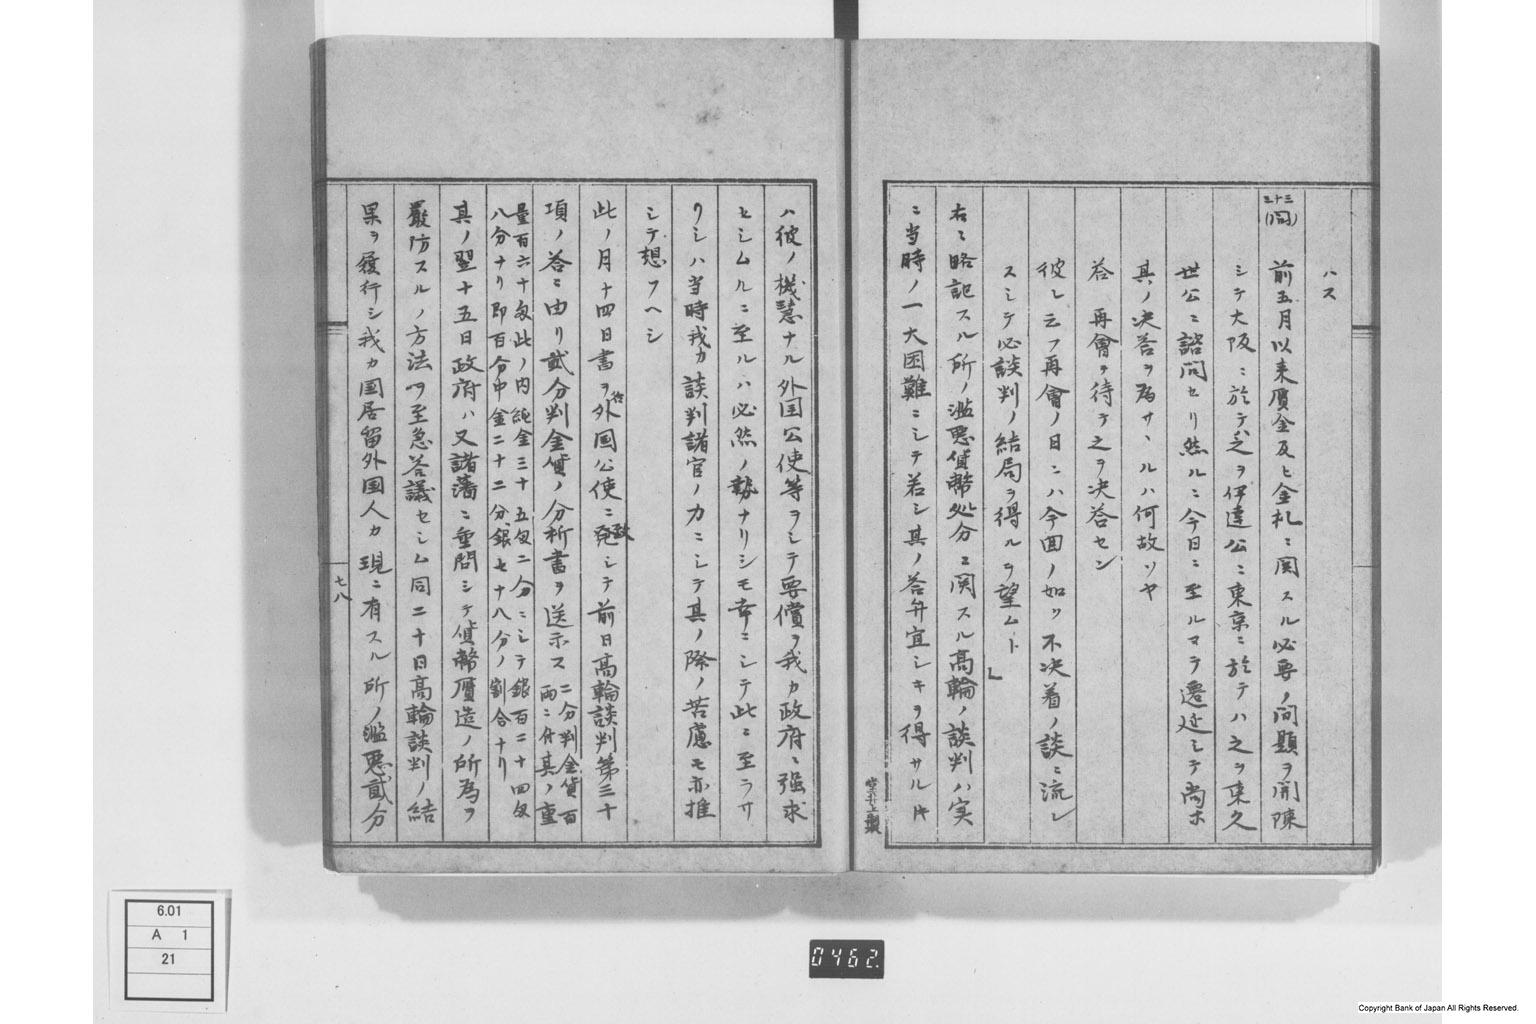 ハス
三十三
(問)
前五月以来贋金及ヒ金札ニ関スル必要ノ問題ヲ開陳
シテ大阪ニ於テ之ヲ伊達公ニ東京ニ於テハ之ヲ東久
世公ニ諮問セリ然ルニ今日ニ至ルマテ遷延シテ尚ホ
其ノ决答ヲ為サヽルハ何故ソヤ
答 再會ヲ待テ之ヲ决答セン
彼レ云フ再會ノ日ニハ今回ノ如ク不决着ノ談ニ流レ
スシテ必談判ノ結局ヲ得ルヲ望ムト」
右ニ略記スル所ノ濫悪貨幣処分ニ関スル高輪ノ談判ハ実
ニ当時ノ一大困難ニシテ若シ其ノ答弁宜シキヲ得サル片
ハ彼ノ機慧ナル外国公使等ヲシテ要償ヲ我カ政府ニ强求
セシムルニ至ルハ必然ノ勢ナリシモ幸ニシテ此ニ至ラサ
リシハ当時我カ談判諸官ノ力ニシテ其ノ際ノ苦慮モ亦推
シテ想フヘシ
此ノ月十四日書ヲ各外国公使ニ致シテ前日高輪談判第三十
項ノ答ニ由リ貳分判金貨ノ分析書ヲ送示ス 二分判金貨百
両ニ付其ノ重
量百六十匁此ノ内純金三十五匁二分ニシテ銀百二十四匁
八分ナリ即百分中金二十二分、銀七十八分ノ割合ナリ
其ノ翌十五日政府ハ又諸藩ニ重問シテ貨幣贋造ノ所為ヲ
嚴防スルノ方法ヲ至急答議セシム同二十日高輪談判ノ結
果ヲ履行シ我カ国居留外国人カ現ニ有スル所ノ濫悪貳分
七八
堂井上製
6.01
A 1
21
0462.
Copyright Bank of Japan All Rights Reserved.